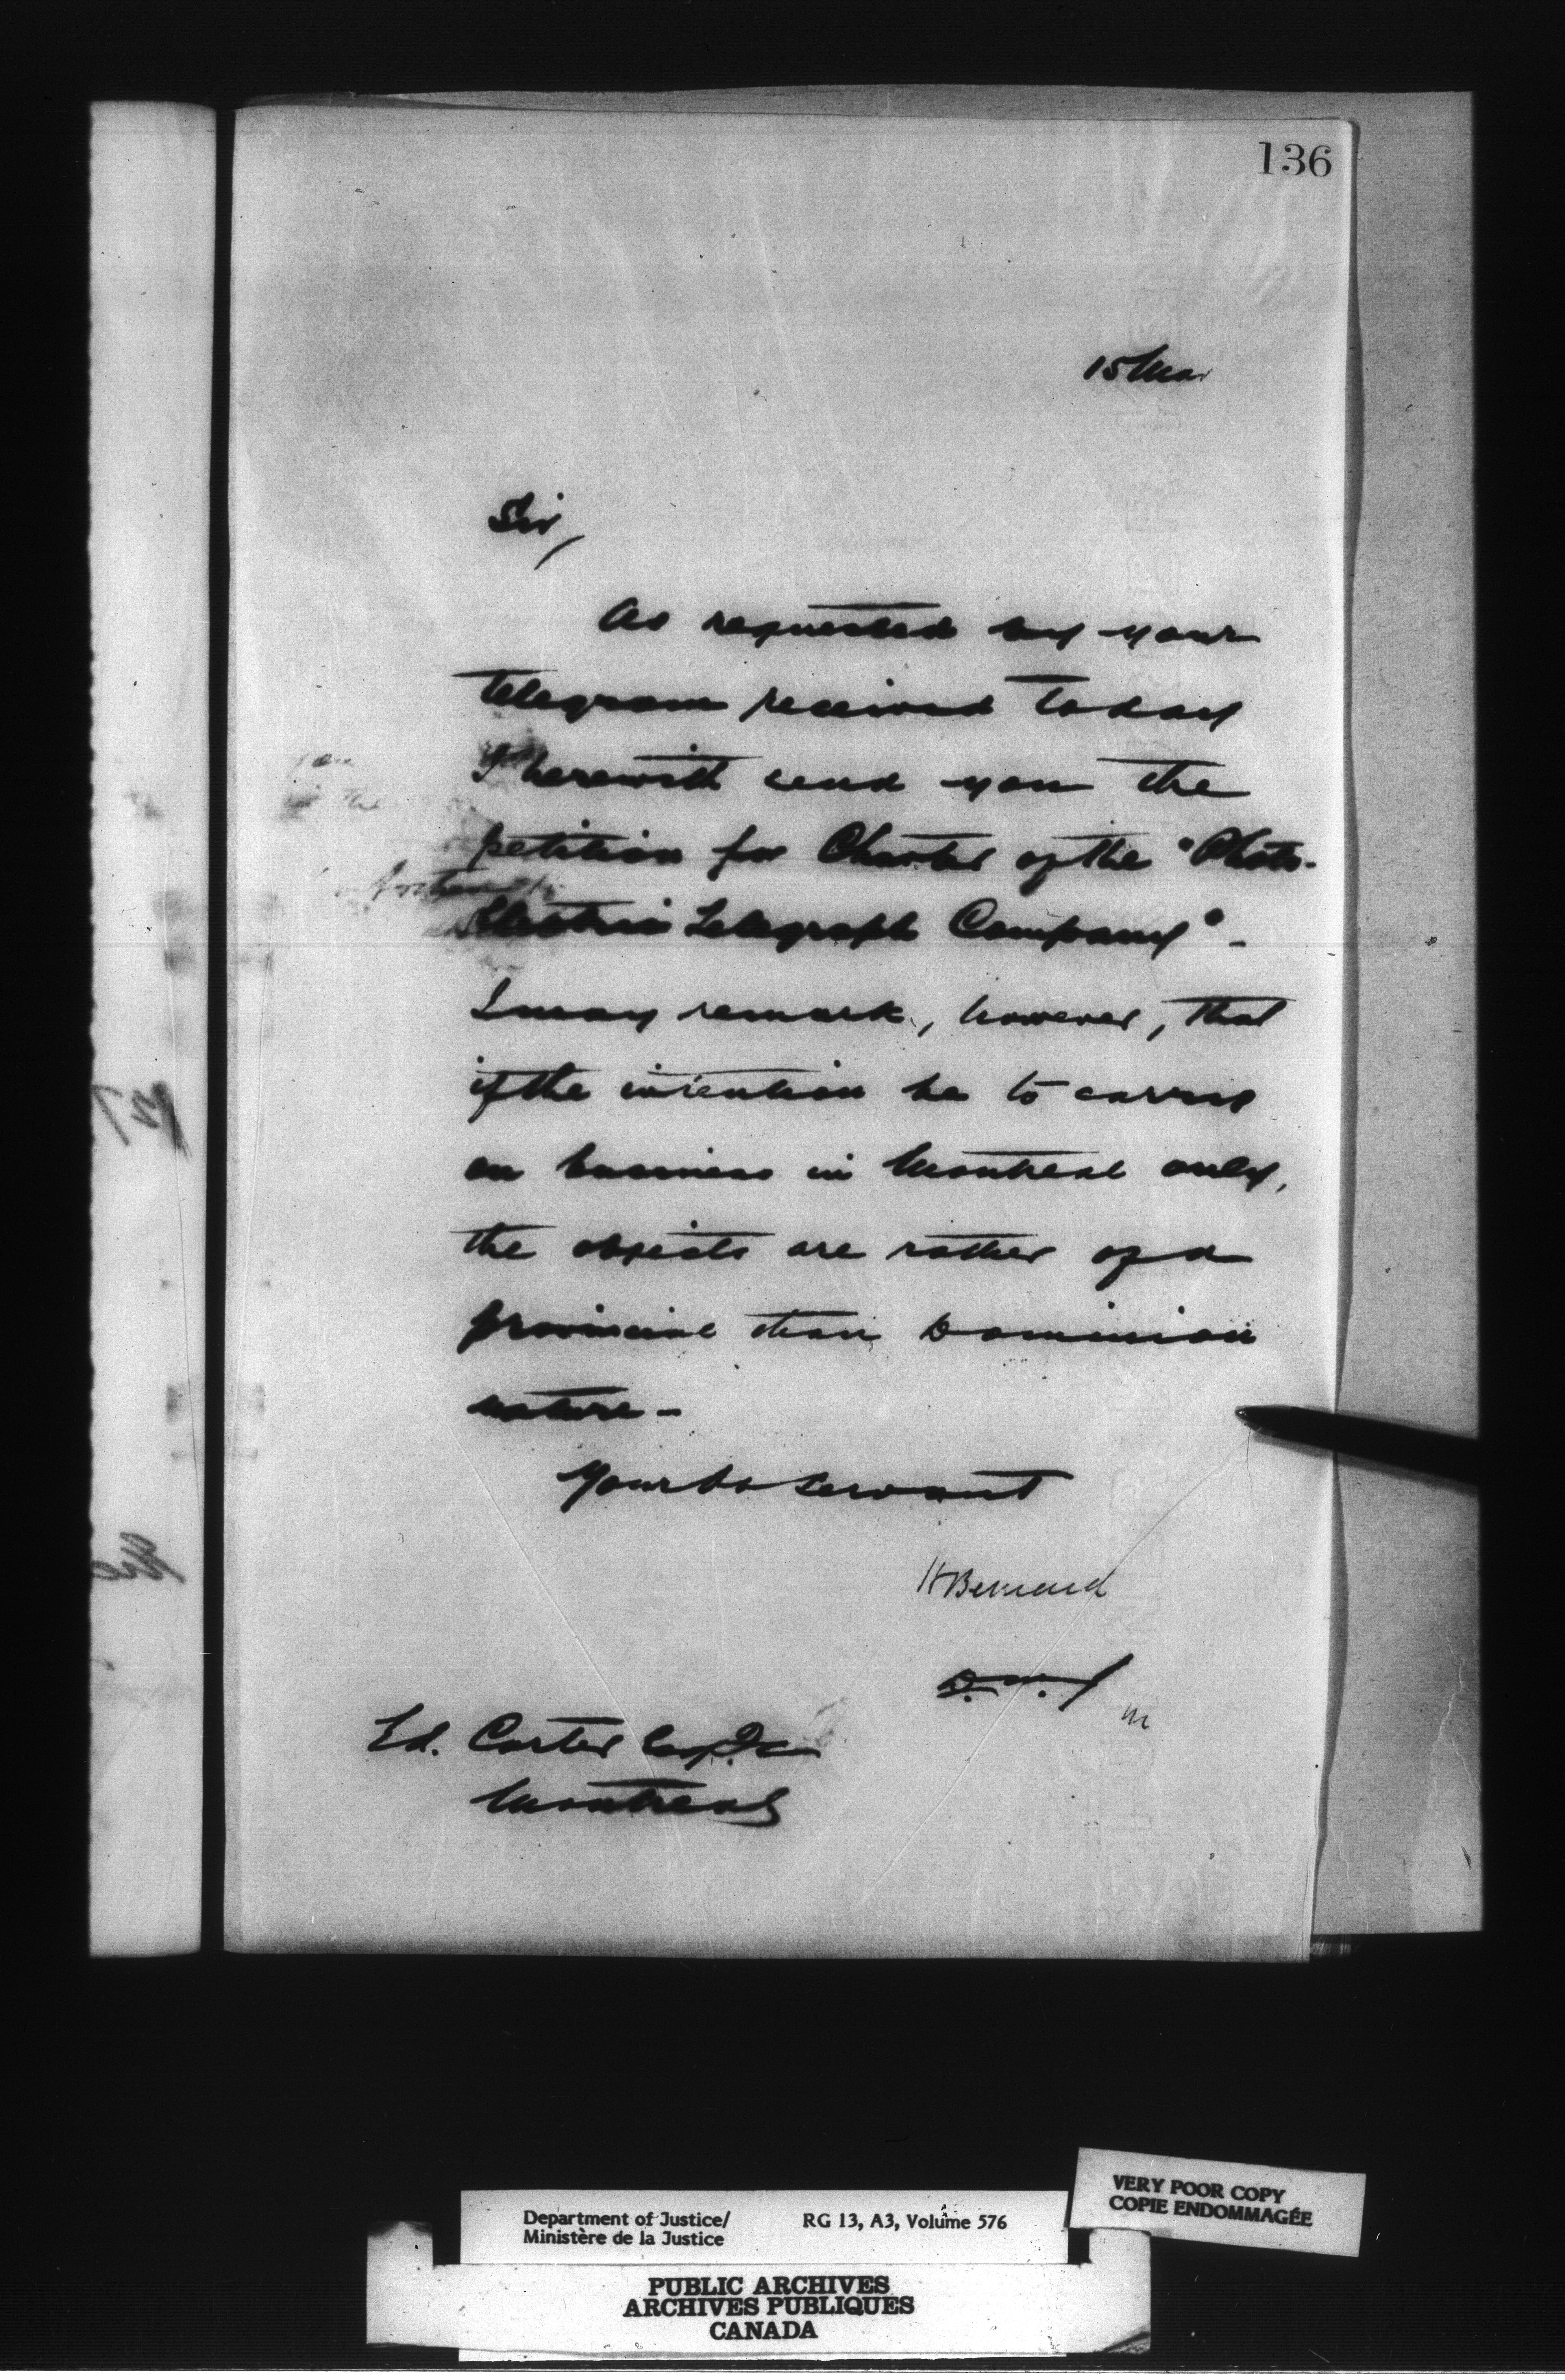 136
15 Mar
Sir,
As requested by your
telegram received today
I herewith send you the
petition for Charter of the "Photo-
Electric Telegraph Company" -
I may remark, however, that
if the intention be to carry
on business in Montreal only,
the objects are rather of a
provincial than Dominion
nature -
Your ob servant
H Bernard
D. M. J
Ed. Carter Esq. Q C
Montreal
VERY POOR COPY
COPIE ENDOMMAGÉE
Department of Justice/ RG 13, A3, Volume 576
Ministère de la Justice
PUBLIC ARCHIVES
ARCHIVES PUBLIQUES
CANADA